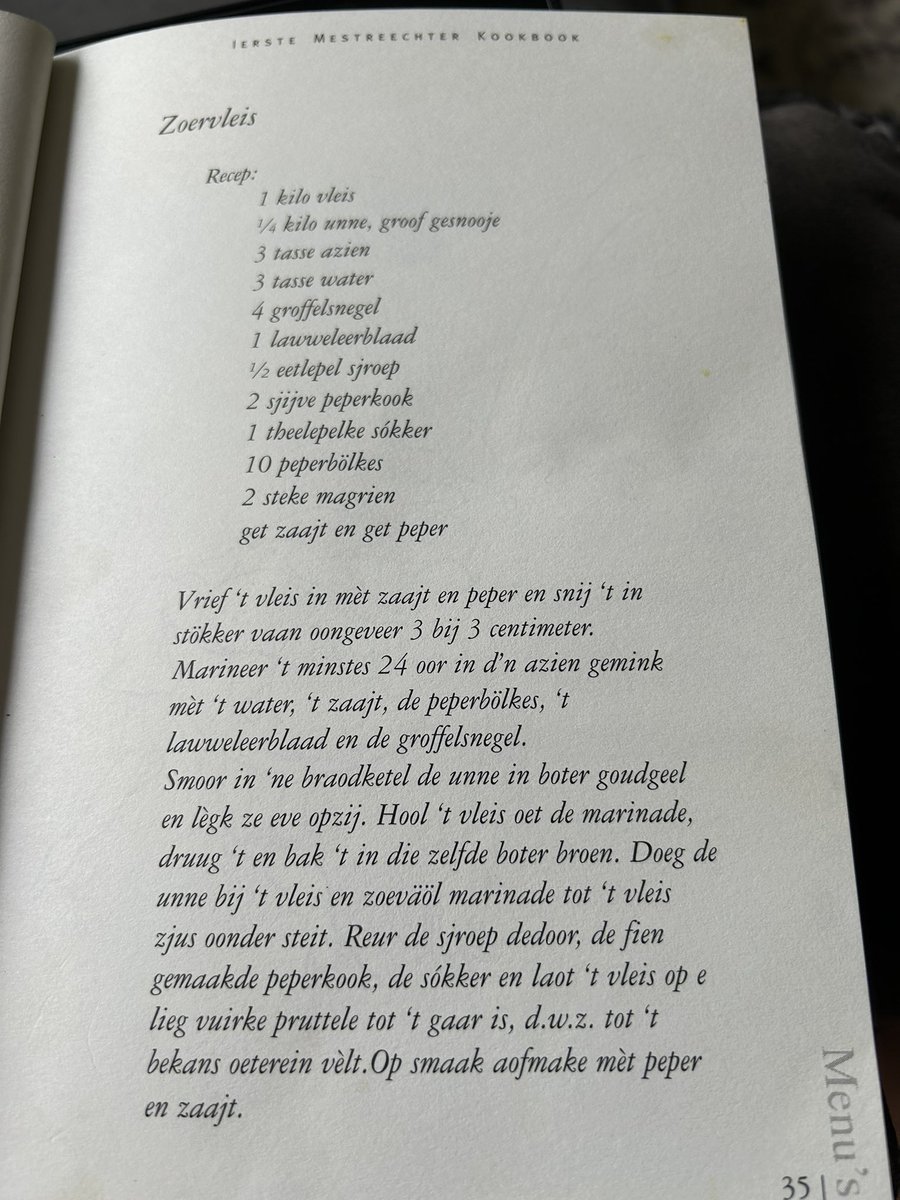 Ierste Mestreechter Kookbook
Zoervleis
Recep:
1 kilo vleis
¼ kilo unne, groof gesnooje
3 tasse azien
3 tasse water
4 groffelsnegel
1 lawweleerblaad
½ eetlepel sjroep
2 sjijve peperkook
1 theelepelke sókker
10 peperbölkes
2 steke magrien
get zaajt en get peper
Vrief ‘t vleis in mèt zaajt en peper en snij ‘t in
stökker vaan oongeveer 3 bij 3 centimeter.
Marineer ‘t minstes 24 oor in d’n azien gemink
mèt ‘t water, ‘t zaajt, de peperbölkes, ‘t
lawweleerblaad en de groffelsnegel.
Smoor in ‘ne braodketel de unne in boter goudgeel
en lègk ze eve opzij. Hool ‘t vleis oet de marinade,
druug ‘t en bak ‘t in die zelfde boter broen. Doeg de
unne bij ‘t vleis en zoeväöl marinade tot ‘t vleis
zjus oonder steit. Reur de sjroep dedoor, de fien
gemaakde peperkook, de sókker en laot ‘t vleis op e
lieg vuirke pruttele tot ‘t gaar is, d.w.z. tot ‘t
bekans oeterein vèlt.Op smaak aofmake mèt peper
en zaajt.
Menu’s
35 |